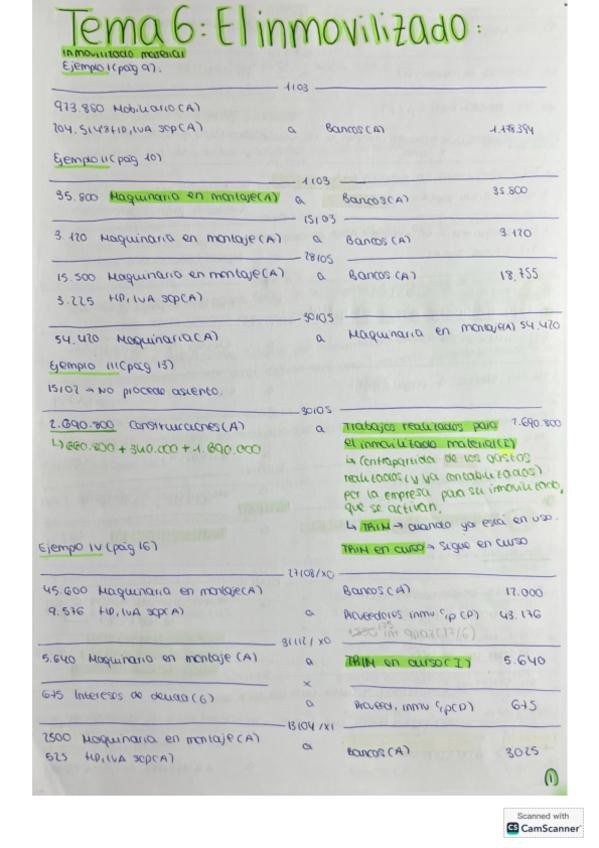 Tema 6: El inmovilizado:
inmovilizado material
Ejemplo I (pág 9).
1103
973.850 Mobiliario (A)
204.5 HP, IVA sop (A) a Bancos (A) 1.178.394
Ejemplo II (pág 10)
1103
35.800 Maquinaria en montaje (A) a Bancos (A) 35.800
15103
3.120 Maquinaria en montaje (A) a Bancos (A) 3.120
28105
15.500 Maquinaria en montaje (A) a Bancos (A) 18.755
3.225 HP, IVA sop (A)
30105
54.420 Maquinaria (A) a Maquinaria en montaje (A) 54.420
Ejemplo III (pág 13)
15102 → No procede asiento.
30105
2.690.800 Construcciones (A) a Trabajos realizados para 2.690.800
el inmovilizado material (I)
↳ 660.800 + 340.000 + 1.690.000
↳ Contrapartida de los gastos
realizados (y ya contabilizados)
por la empresa para su inmovilizado,
que se activan.
↳ TRIM → cuando ya está en uso.
TRIM en curso → sigue en curso
Ejemplo IV (pág 16)
27108/X0
45.600 Maquinaria en montaje (A) Bancos (A) 12.000
9.576 HP, IVA sop (A) a Proveedores inmv c/p (P) 43.176
31112/X0
5.640 Maquinaria en montaje (A) a TRIM en curso (I) 5.640
x
675 Intereses de deuda (G) a Proveed. inmv c/p (P) 675
13104/X1
2500 Maquinaria en montaje (A) a Bancos (A) 3025
525 HP, IVA sop (A)
1
Scanned with
CS CamScanner